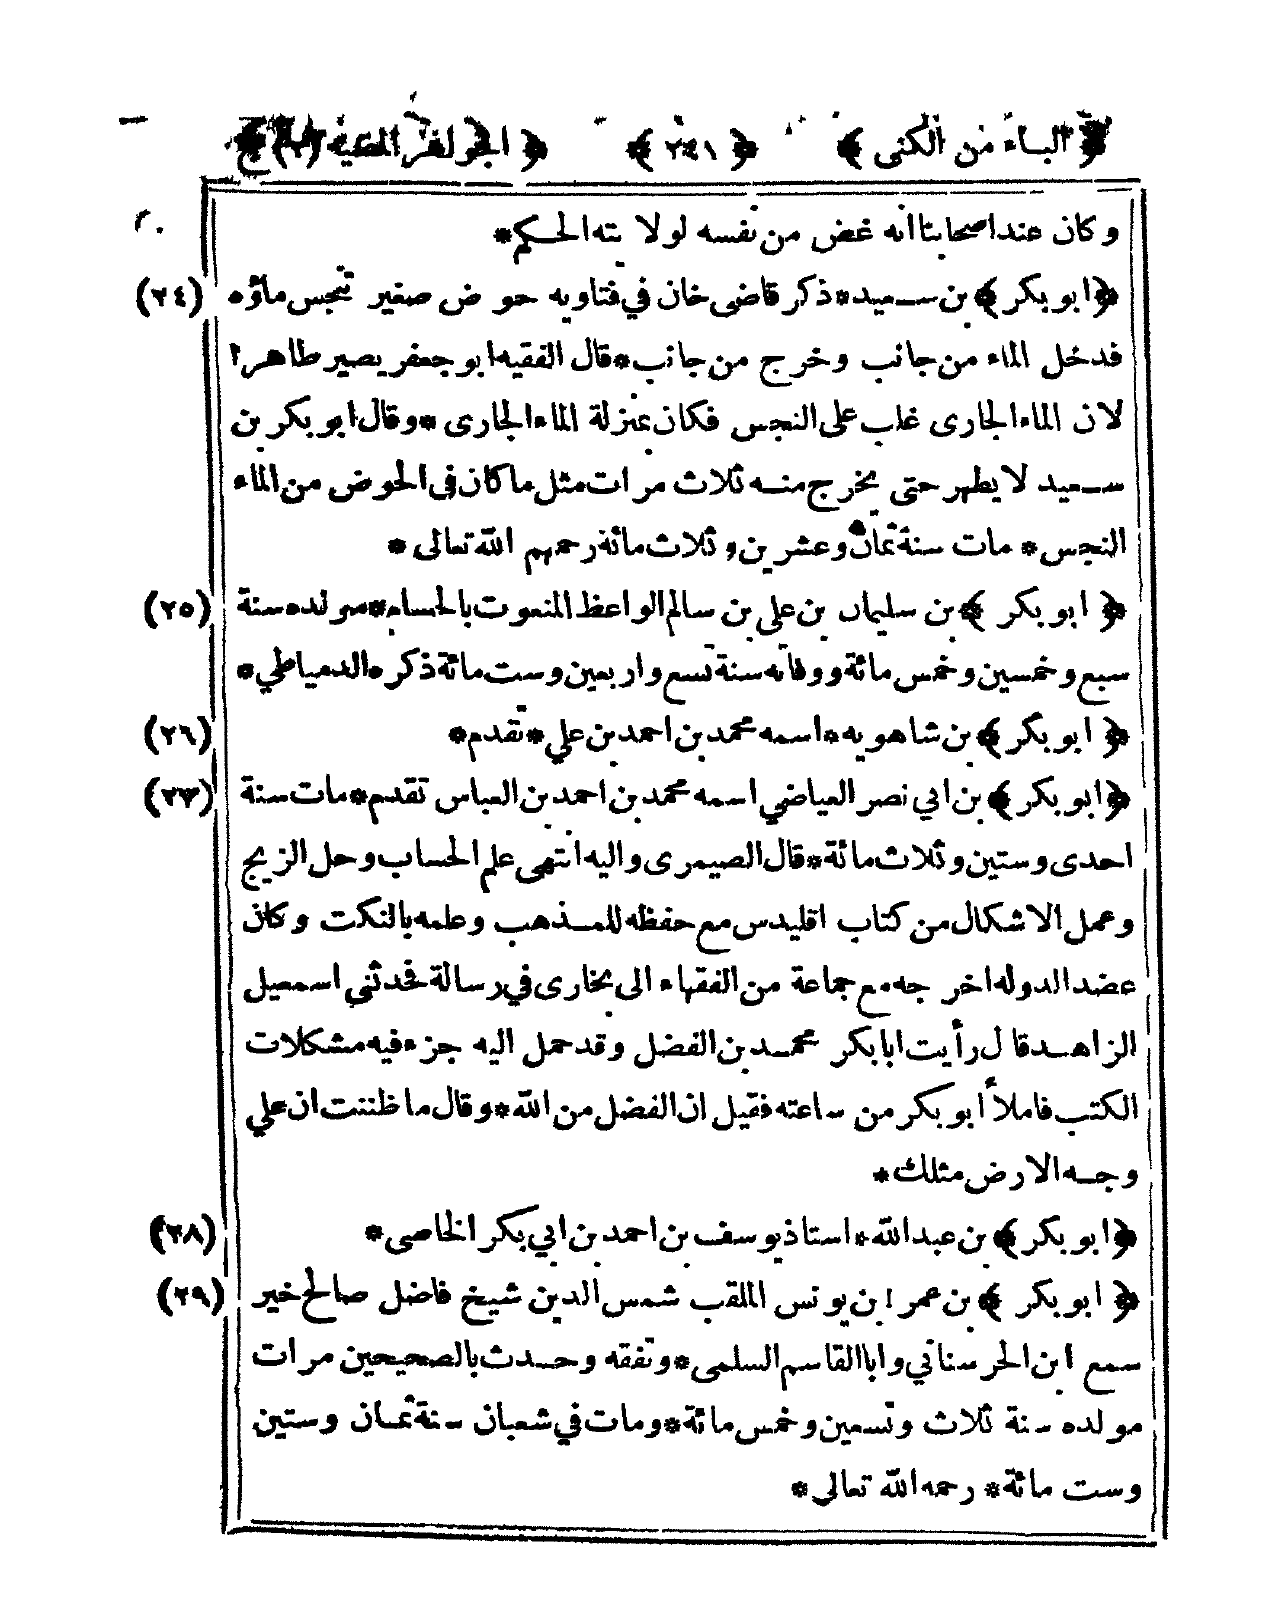 ﴿ الباء من الكنى ﴾ ﴿ ٢٤١ ﴾ ﴿ الجواهر المضيه (٢) ج ﴾
وكان عند اصحابنا انه غض من نفسه لولا يته الحكم *
﴿ ابو بكر ﴾ بن سعيد * ذكر قاضى خان في فتاويه حوض صغير تنجس ماؤه (٢٤)
فدخل الماء من جانب وخرج من جانب * قال الفقيه ابو جعفر يصير طاهرا
لان الماء الجارى غلب على النجس فكان بمنزلة الماء الجارى * وقال ابو بكر بن
سعيد لا يطهر حتى يخرج منه ثلاث مرات مثل ما كان فى الحوض من الماء
النجس * مات سنة ثمان وعشرين وثلاث مائة رحمهم الله تعالى *
﴿ ابو بكر ﴾ بن سليمان بن علي بن سالم الواعظ المنعوت بالحسام * مولده سنة (٢٥)
سبع وخمسين وخمس مائة ووفاته سنة تسع واربعين وست مائة ذكره الدمياطي *
﴿ ابو بكر ﴾ بن شاهويه * اسمه محمد بن احمد بن علي * تقدم * (٢٦)
﴿ ابو بكر ﴾ بن ابي نصر العياضي اسمه محمد بن احمد بن العباس تقدم * مات سنة (٢٧)
احدى وستين وثلاث مائة * قال الصيمرى واليه انتهى علم الحساب وحل الزيج
وعمل الاشكال من كتاب اقليدس مع حفظه للمذهب وعلمه بالنكت وكان
عضد الدوله اخرجه مع جماعة من الفقهاء الى بخارى في رسالة فحدثني اسمعيل
الزاهد قال رأيت ابا بكر محمد بن الفضل وقد حمل اليه جزء فيه مشكلات
الكتب فاملأ أبو بكر من ساعته فقيل ان الفضل من الله * وقال ما ظننت ان علي
وجه الارض مثلك *
﴿ ابو بكر ﴾ بن عبد الله * استاذ يوسف بن احمد بن ابي بكر الخاصى * (٢٨)
﴿ ابو بكر ﴾ بن عمر ابن يونس الملقب شمس الدين شيخ فاضل صالح خير (٢٩)
سمع ابن الحرستاني وابا القاسم السلمى * وتفقه وحدث بالصحيحين مرات
مولده سنة ثلاث وتسعين وخمس مائة * ومات في شعبان سنة ثمان وستين
وست مائة * رحمه الله تعالى *